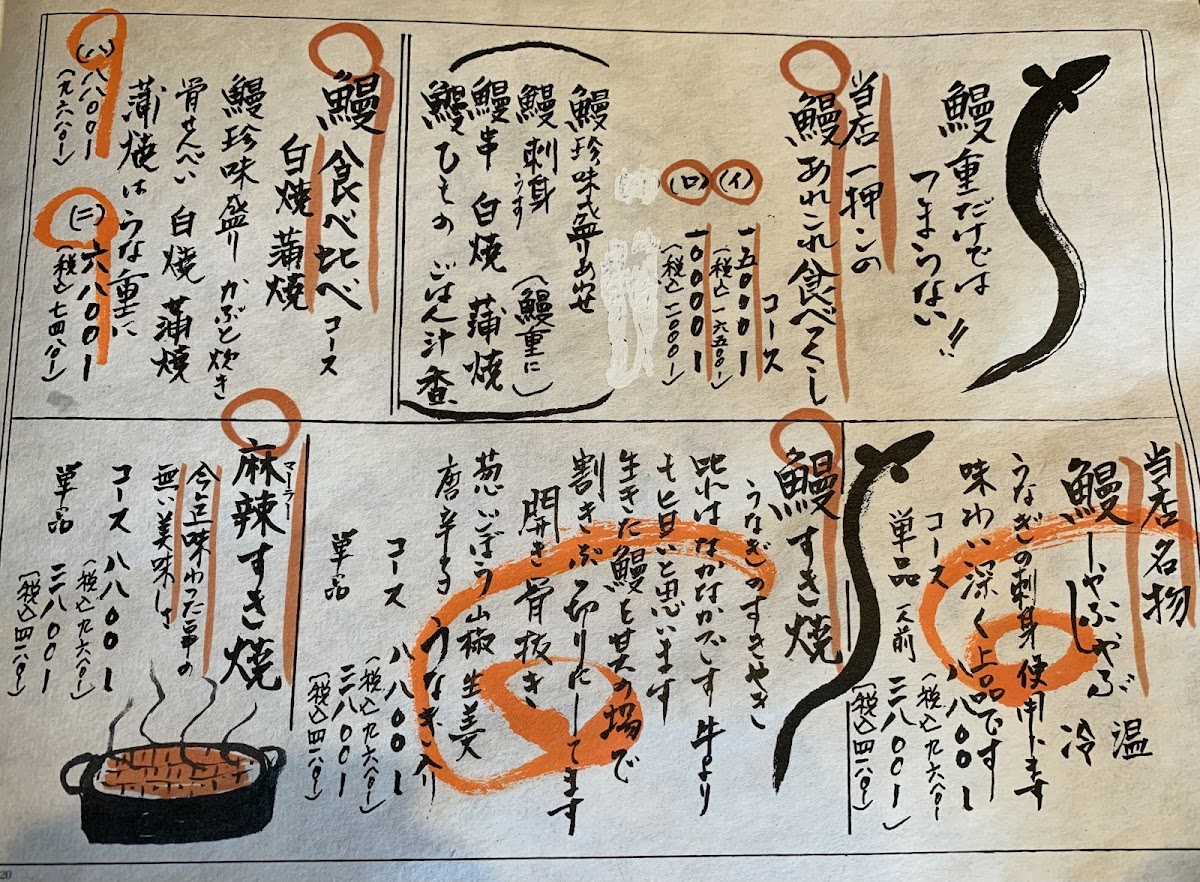 鰻重だけでは
つまらない!!
当店一押シの
鰻あれこれ食べつくし
コース
(イ) 一五〇〇〇ー
(税込一六五〇〇ー)
(ロ) 一〇〇〇〇ー
(税込一一〇〇〇ー)
鰻珍味盛りあわせ
鰻刺身 うす (鰻重に)
鰻串 白焼 蒲焼
鰻ひつめし ごはん汁香
鰻食べ比べコース
白焼 蒲焼
鰻珍味盛り かぶと炊き
骨せんべい 白焼 蒲焼
蒲焼はうな重に
(ハ) 八八〇〇ー
(九六八〇ー)
(ニ) 六八〇〇ー
(税込七四八〇ー)
当店名物
鰻しゃぶしゃぶ 温
冷
うなぎの刺身使用します
味わい深く上品です
コース 八八〇〇ー
(税込九六八〇ー)
単品 一人前 三八〇〇ー
(税込四一八〇ー)
鰻すき焼
うなぎのすきやき
此れはなかなかです 牛より
も旨いと思います
生きた鰻を其の場で
割きぶつ切りにしてます
開き骨抜き
葱ごぼう山椒生姜
唐辛子 うなぎ入り
コース 八八〇〇ー
(税込九六八〇ー)
単品 三八〇〇ー
(税込四一八〇ー)
マーラー
麻辣すき焼
今迄味わった事の
無い美味しさ
コース 八八〇〇ー
(税込九六八〇ー)
単品 三八〇〇ー
(税込四一八〇ー)
20